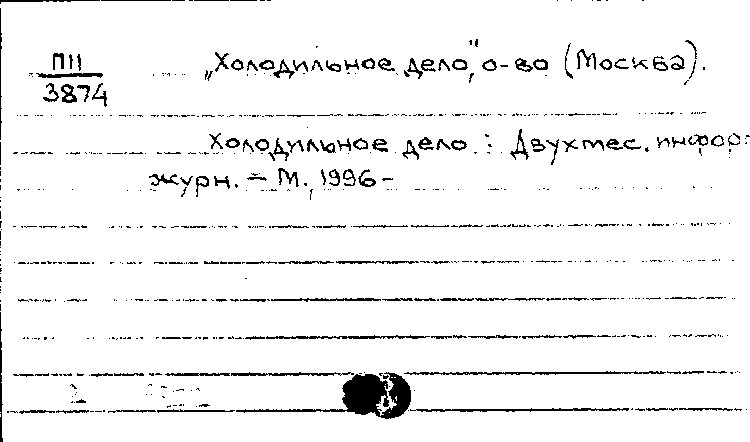 П11
3874
„Холодильное дело", о-во (Москва).
Холодильное дело : Двухмес. инфор.
журн. – М., 1996 –